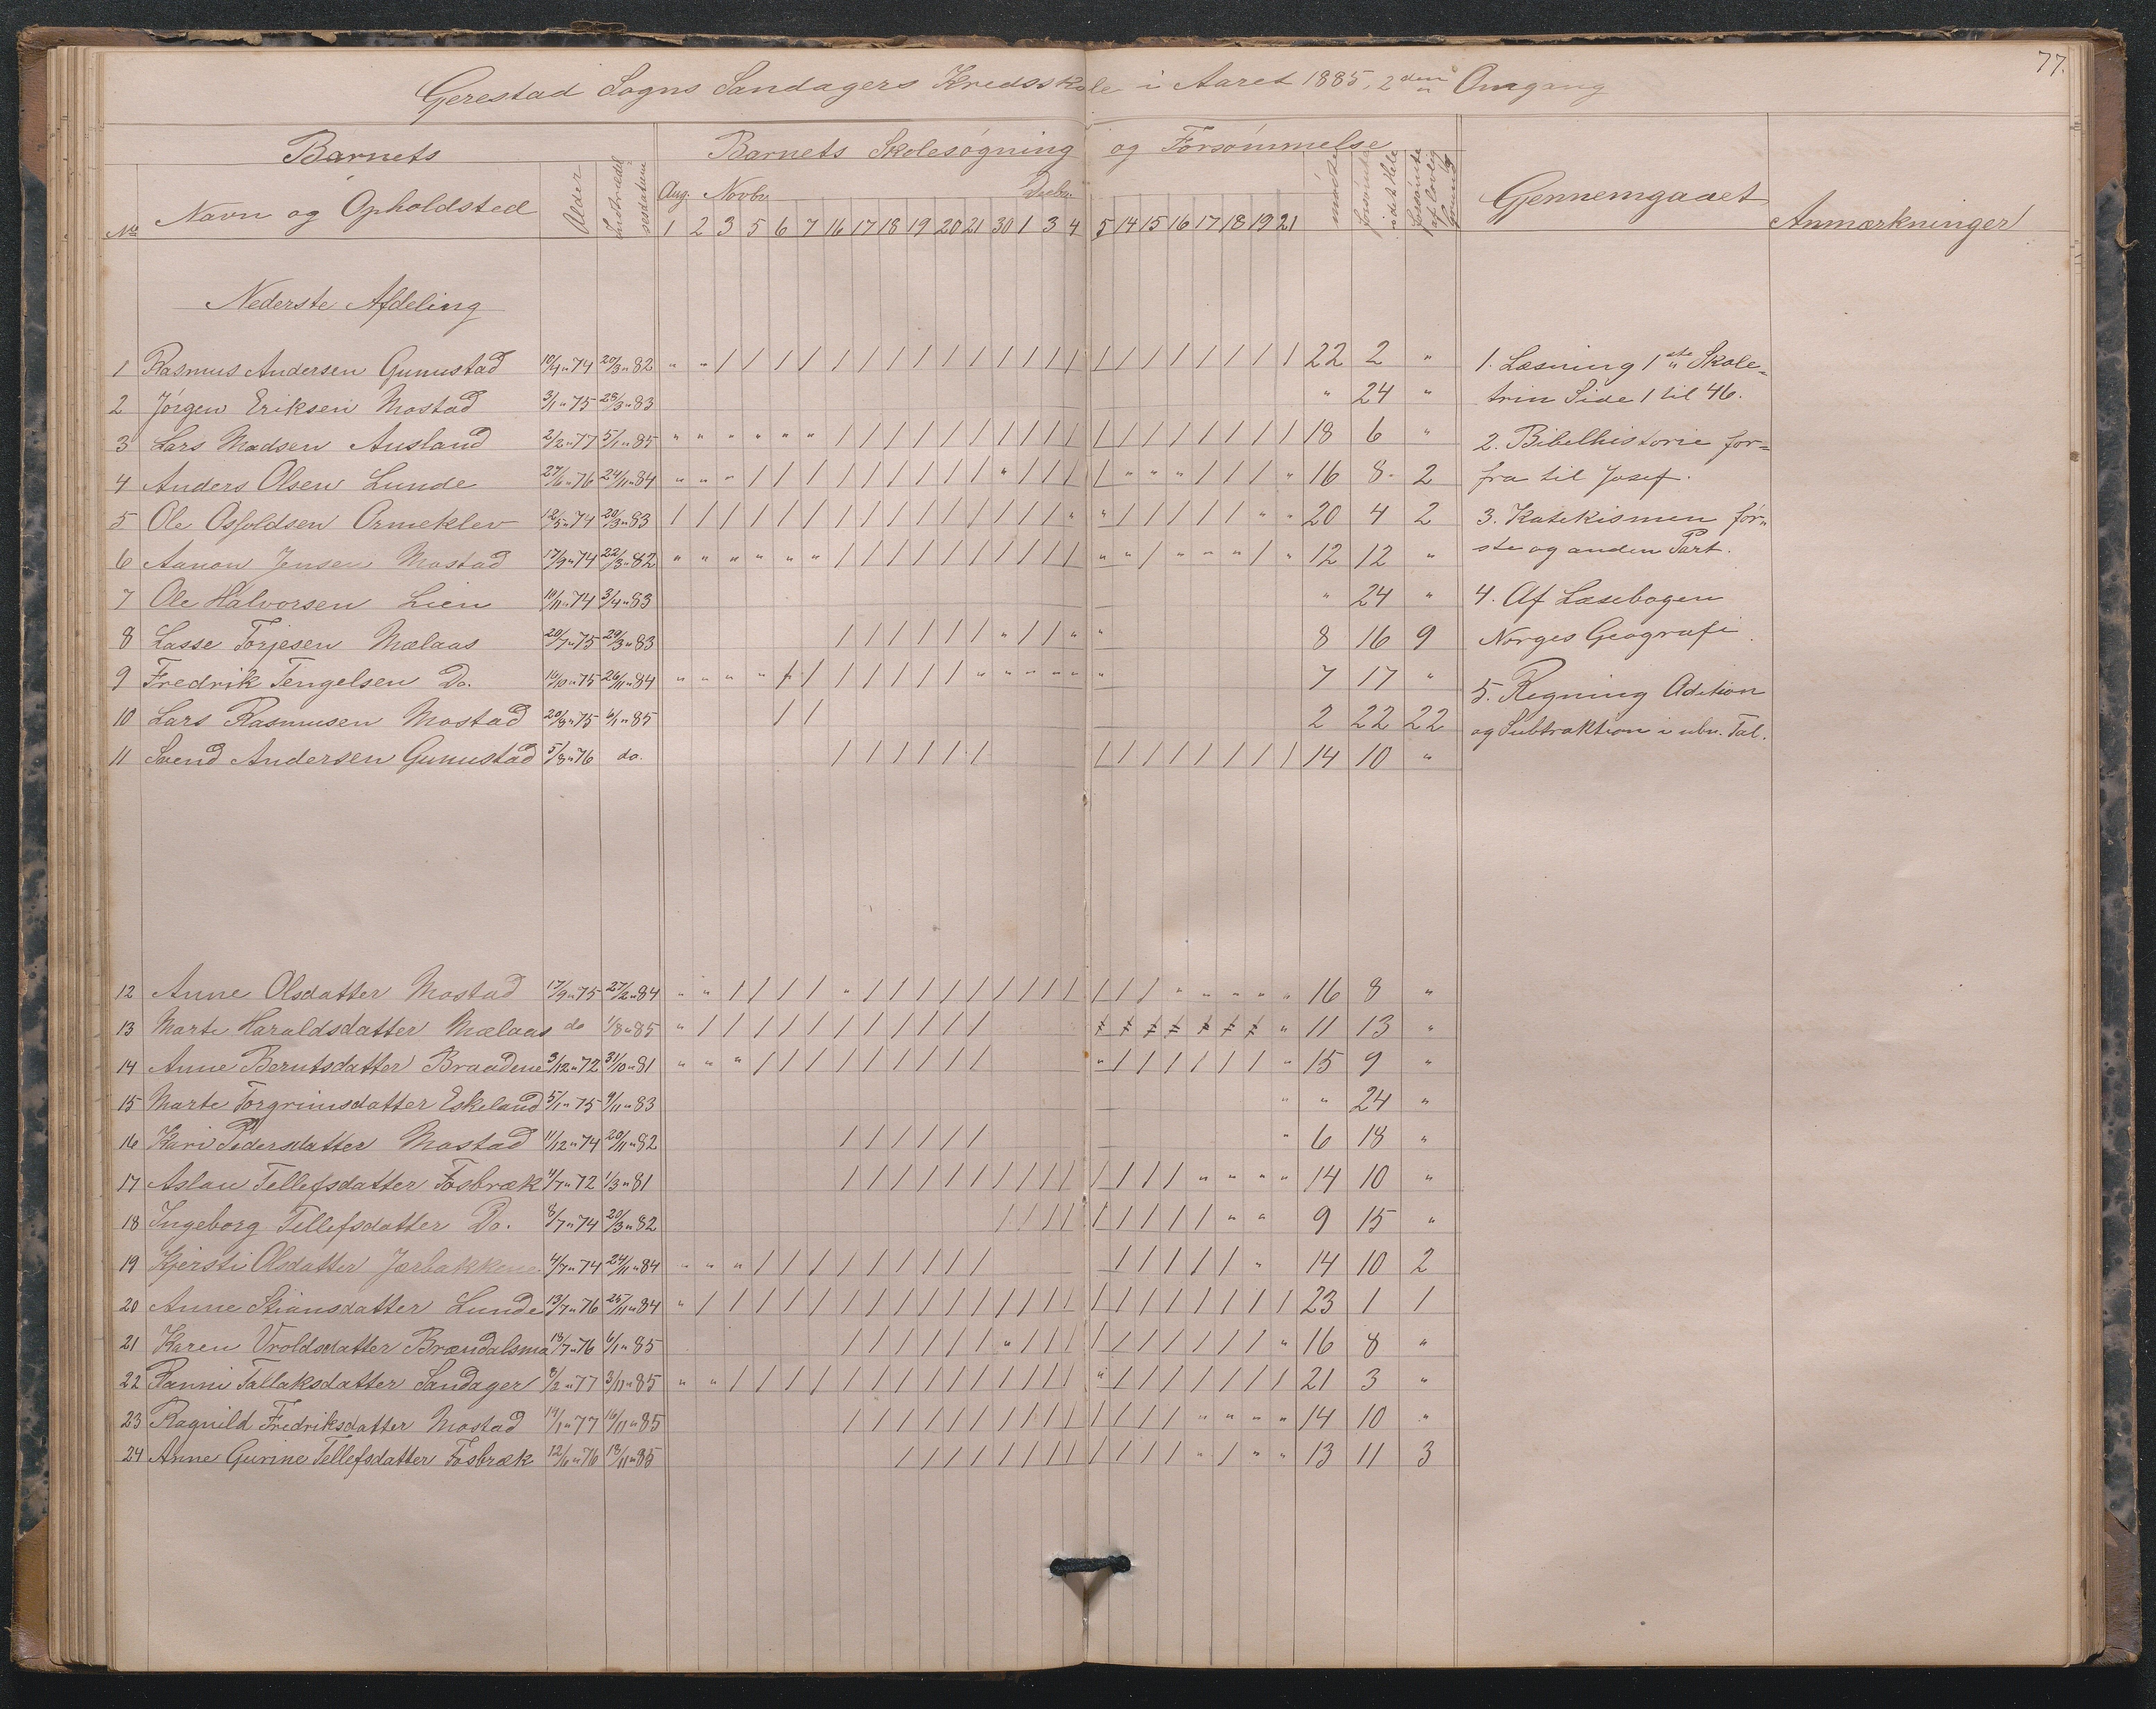 77.
Gerestad Sogns Sandagers Kredsskole i Aaret 1885, 2den Omgang
Barnets Barnets Skolesøgning og Forsømmelse
No Navn og Opholdsted Alder Indtrædelsesdatum Aug. Novbr. Decbr. mødte forsømte i det Hele forsømte af lovlig Grund Gjennemgaaet Anmærkninger
1 2 3 5 6 7 16 17 18 19 20 21 30 1 3 4 5 14 15 16 17 18 19 21
Nederste Afdeling
1 Rasmus Andersen Gunustad 10/4 " 74 20/3 " 82 " " / / / / / / / / / / / / / / / / / / / / / / 22 2 "
2 Jørgen Eriksen Mostad 3/1 " 75 28/3 " 83 " 24 "
3 Lars Madsen Ausland 2/2 " 77 5/1 " 85 " " " " " " / / / / / / / / / / / / / / / / / / 18 6 "
4 Anders Olsen Lunde 27/6 " 76 24/11 " 84 " " " / / / / / / / / / " / / / / " " " / / / " 16 8 2
5 Ole Osfoldsen Ormeklev 12/5 " 74 20/3 " 83 / / / / / / / / / / / / / / / " " / / / / / " " 20 4 2
6 Aanon Jensen Mostad 17/9 " 74 22/3 " 82 " " " " " " / / / / / / / / / / " " / " " " / " 12 12 "
7 Ole Halvorsen Lien 10/11 " 74 3/4 " 83 " 24 "
8 Lasse Torjesen Mælaas 20/7 " 75 29/3 " 83 / / / / / / " / / " " 8 16 9
9 Fredrik Tengelsen Do. 16/10 " 75 26/11 " 84 " " " " / / / / / / / " " " " " " 7 17 "
10 Lars Rasmusen Mostad 20/8 " 75 6/1 " 85 / / 2 22 22
11 Svend Andersen Gunustad 5/8 " 76 do. / / / / / / / / / / / / / / 14 10 "
1. Læsning 1ste Skole-
trin Side 1 til 46.
2. Bibelhistorie for-
fra til Josef.
3. Katekismen før-
ste og anden Part.
4. Af Læsebogen
Norges Geografi.
5. Regning Adition
og Subtraktion i ubn. Tal.
12 Anne Olsdatter Mostad 17/9 " 75 27/2 " 84 " " / / / / " / / / / / / / / / / / / " " " " " 16 8 "
13 Marte Haraldsdatter Mælaas do 1/8 " 85 " / / / / / / / / / / / 11 13 "
14 Anne Berntsdatter Braadene 3/12 " 72 31/10 " 81 " " " / / / / / / / / / " / / / / / / " 15 9 "
15 Marte Torgrimsdatter Eskeland 5/1 " 75 9/11 " 83 " " 24 "
16 Kari Pedersdatter Mostad 11/12 " 74 20/11 " 82 / / / / / / " 6 18 "
17 Aslau Tellefsdatter Fosbræk 4/7 " 72 1/3 " 81 / / / / / / / / / / / / / / " " " " 14 10 "
18 Ingeborg Tellefsdatter Do. 8/7 " 74 20/3 " 82 / / / / / / / / / " " 9 15 "
19 Kjersti Olsdatter Jorbakkene 4/7 " 74 24/11 " 84 " " " / / / / / / / / / / / / / / " 14 10 2
20 Anne Stiansdatter Lunde 13/7 " 76 25/11 " 84 " / / / / / / / / / / / / / / / / / / / / / / / 23 1 1
21 Karen Vroldsdatter Brændalsmo 18/7 " 76 6/1 " 85 / / / / / / " / / / / / / / / / / " 16 8 "
22 Fanni Tallaksdatter Sandager 8/2 " 77 3/11 " 85 " " / / / / / / / / / / / / / / " / / / / / / / 21 3 "
23 Ragnild Fredriksdatter Mostad 14/1 " 77 16/11 " 85 / / / / / / / / / / / / / / " " " " 14 10 "
24 Anne Gurine Tellefsdatter Fosbræk 12/6 " 76 18/11 " 85 / / / / / / / / / / / / " / " " 13 11 3